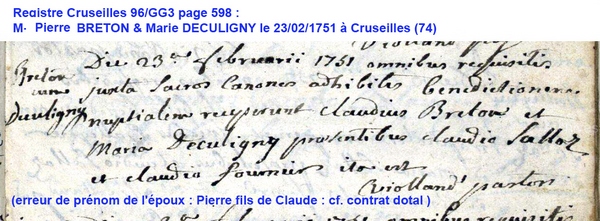 Registre Cruseilles 96/GG3 page 598 :
M· Pierre BRETON & Marie DECULIGNY le 23/02/1751 à Cruseilles (74)
Breton
cum
Deculigny
Die 23ª februarii 1751 omnibus requisitis
juxta Sacros Canones adhibitis benedictionem
nuptialem receperunt claudius Breton et
Maria Deculigny presentibus claudio Sallaz
et claudio fournier ita est
Violland pastor
(erreur de prénom de l'époux : Pierre fils de Claude : cf. contrat dotal )